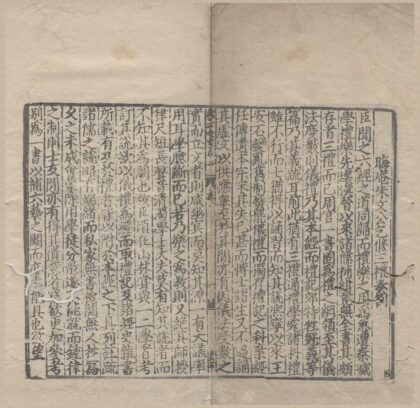 晦菴朱文公乞修三禮奏劄
臣聞之六經之道同歸而禮樂之用為急遭秦滅
學禮樂先壞漢晉以來諸儒補緝竟無全書其頗
存者三禮而已周官一書固為禮之綱領至其儀
法度數則儀禮乃其本經而禮記郊特牲冠義等
篇乃其義疏耳前此猶有三禮通禮學究諸科禮
雖不行而士猶得以誦習而知其說熙寧以來王
安石變亂舊制廢罷儀禮而獨存禮記之科棄經
任傳遺本宗末其失已甚而博士諸生又不過誦
其虛文以供應舉至於其間亦有因儀法度數之
實而立文者則咸幽冥而莫知其源一有大議率
用耳學臆斷而已若乃樂之為教則又絕無師授
律尺短長聲音清濁學士大夫莫有知其說者而
不知其為闕也故臣頃在山林嘗與一二學者考
訂其說欲以儀禮為經而取禮記及諸經史雜書
所載有及於禮者皆以附於本經之下具列註疏
諸儒之說略有端緒而私家無書檢閱無人抄寫
久之未成會蒙除用學徒分散遂不能就而鍾律
之制則士友間亦有得其遺意者竊欲更加參考
別為一書以補六藝之闕而亦未能具也欲望